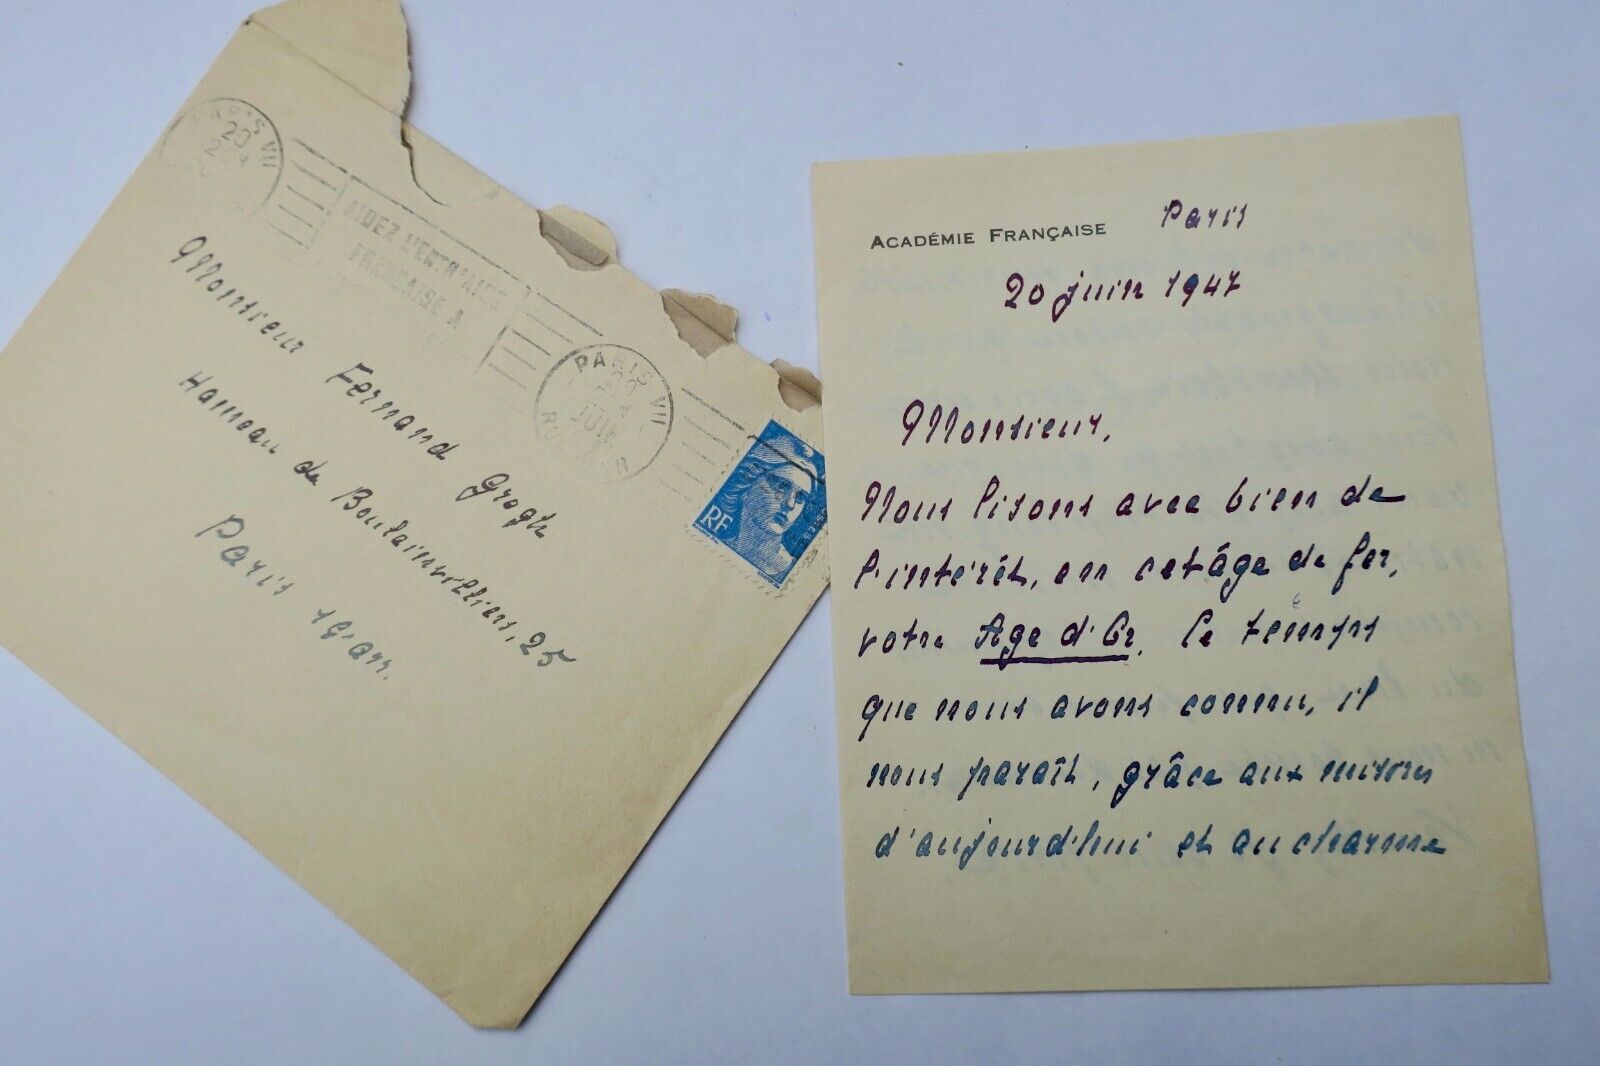 PARIS VII
20
AIDEZ L'ENTR'AIDE
FRANÇAISE A
PARIS VII
JUIN
RF
POSTES
Monsieur Fernand Gregh
Hameau de Boulainvilliers, 25
Paris 16e arr.
ACADÉMIE FRANÇAISE
Paris
20 juin 1947
Monsieur,
Nous lisons avec bien de
l'intérêt, en cet âge de fer,
votre Age d'Or. Le temps
que nous avons connu, il
nous paraît, grâce aux misères
d'aujourd'hui et au charme